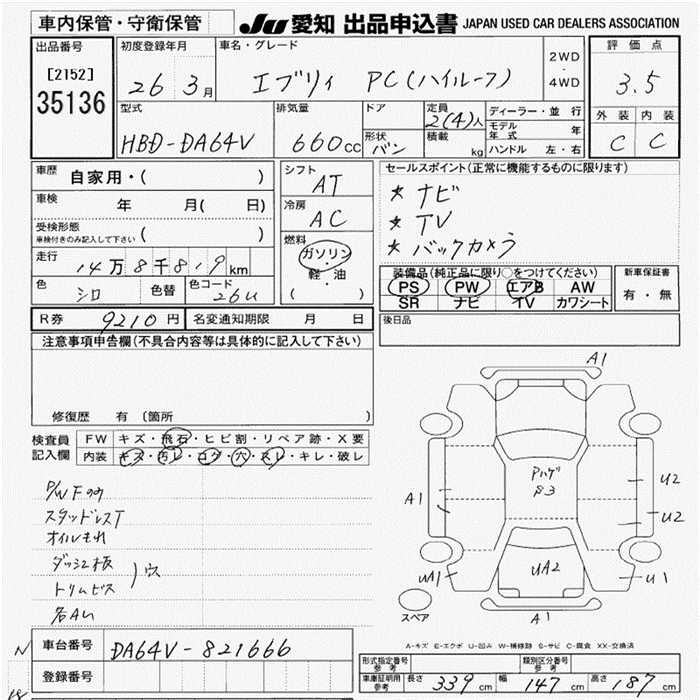 車内保管・守衛保管
JU 愛知 出品申込書 JAPAN USED CAR DEALERS ASSOCIATION
出品番号
[2152]
35136
初度登録年月
26 3月
車名・グレード
エブリィ PC(ハイルーフ)
2WD
・
4WD
評価点
3.5
外装 内装
C C
型式
HBD-DA64V
排気量
660cc
ドア
形状
バン
定員
2(4)人
積載
kg
ディーラー・並行
モデル年式 年
ハンドル 左・右
車歴
自家用・( )
車検
年 月( 日)
受検形態
車検付きのみ記入して下さい
( )
走行
14万8千819km
色
シロ
色替
色コード
26U
シフト
AT
冷房
AC
燃料
ガソリン
・
軽・油
( )
セールスポイント(正常に機能するものに限ります)
★ ナビ
★ TV
★ バックカメラ
装備品(純正品に限り○をつけてください)
PS PW エアB AW
SR ナビ TV カワシート
新車保証書
有・無
R券 9210円
名変通知期限 月 日
後日品
注意事項申告欄(不具合内容等は具体的に記入して下さい)
修復歴 有 (箇所 )
検査員
記入欄
FW キズ・飛石・ヒビ割・リペア跡・X要
内装 キズ・汚レ・コゲ・穴・スレ・キレ・破レ
P/W Fのみ
スタッドレスT
オイルもれ
ダッシュ板
トリムビス
)穴
各AU
A1
A1
Pハゲ
P3
U2
U2
UA1
UA2
U1
A1
スペア
A-キズ E-エクボ U-凹み W-補修跡 S-サビ C-腐食 XX-交換済
N
車台番号 DA64V-821666
登録番号
型式指定番号
参考
類別区分番号
参考
車庫証明用
参考
長さ 339cm 幅 147cm 高さ 187cm